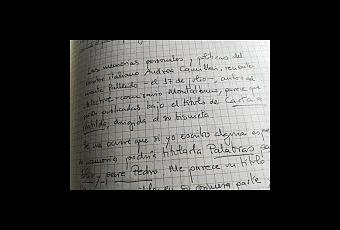 Las memorias personales y políticas del
italiano Andrea Camilleri, reciente
mente fallecido -el 17 de julio-, autor del
detective-comisario Montalbano, parece que
serán publicadas bajo el título de Carta a
Matilda, dirigida a su bisnieta.
Se me ocurre que si yo escribo alguna
memoria podría titularla Palabras
y para Pedro. Me parece un título
en su primera parte